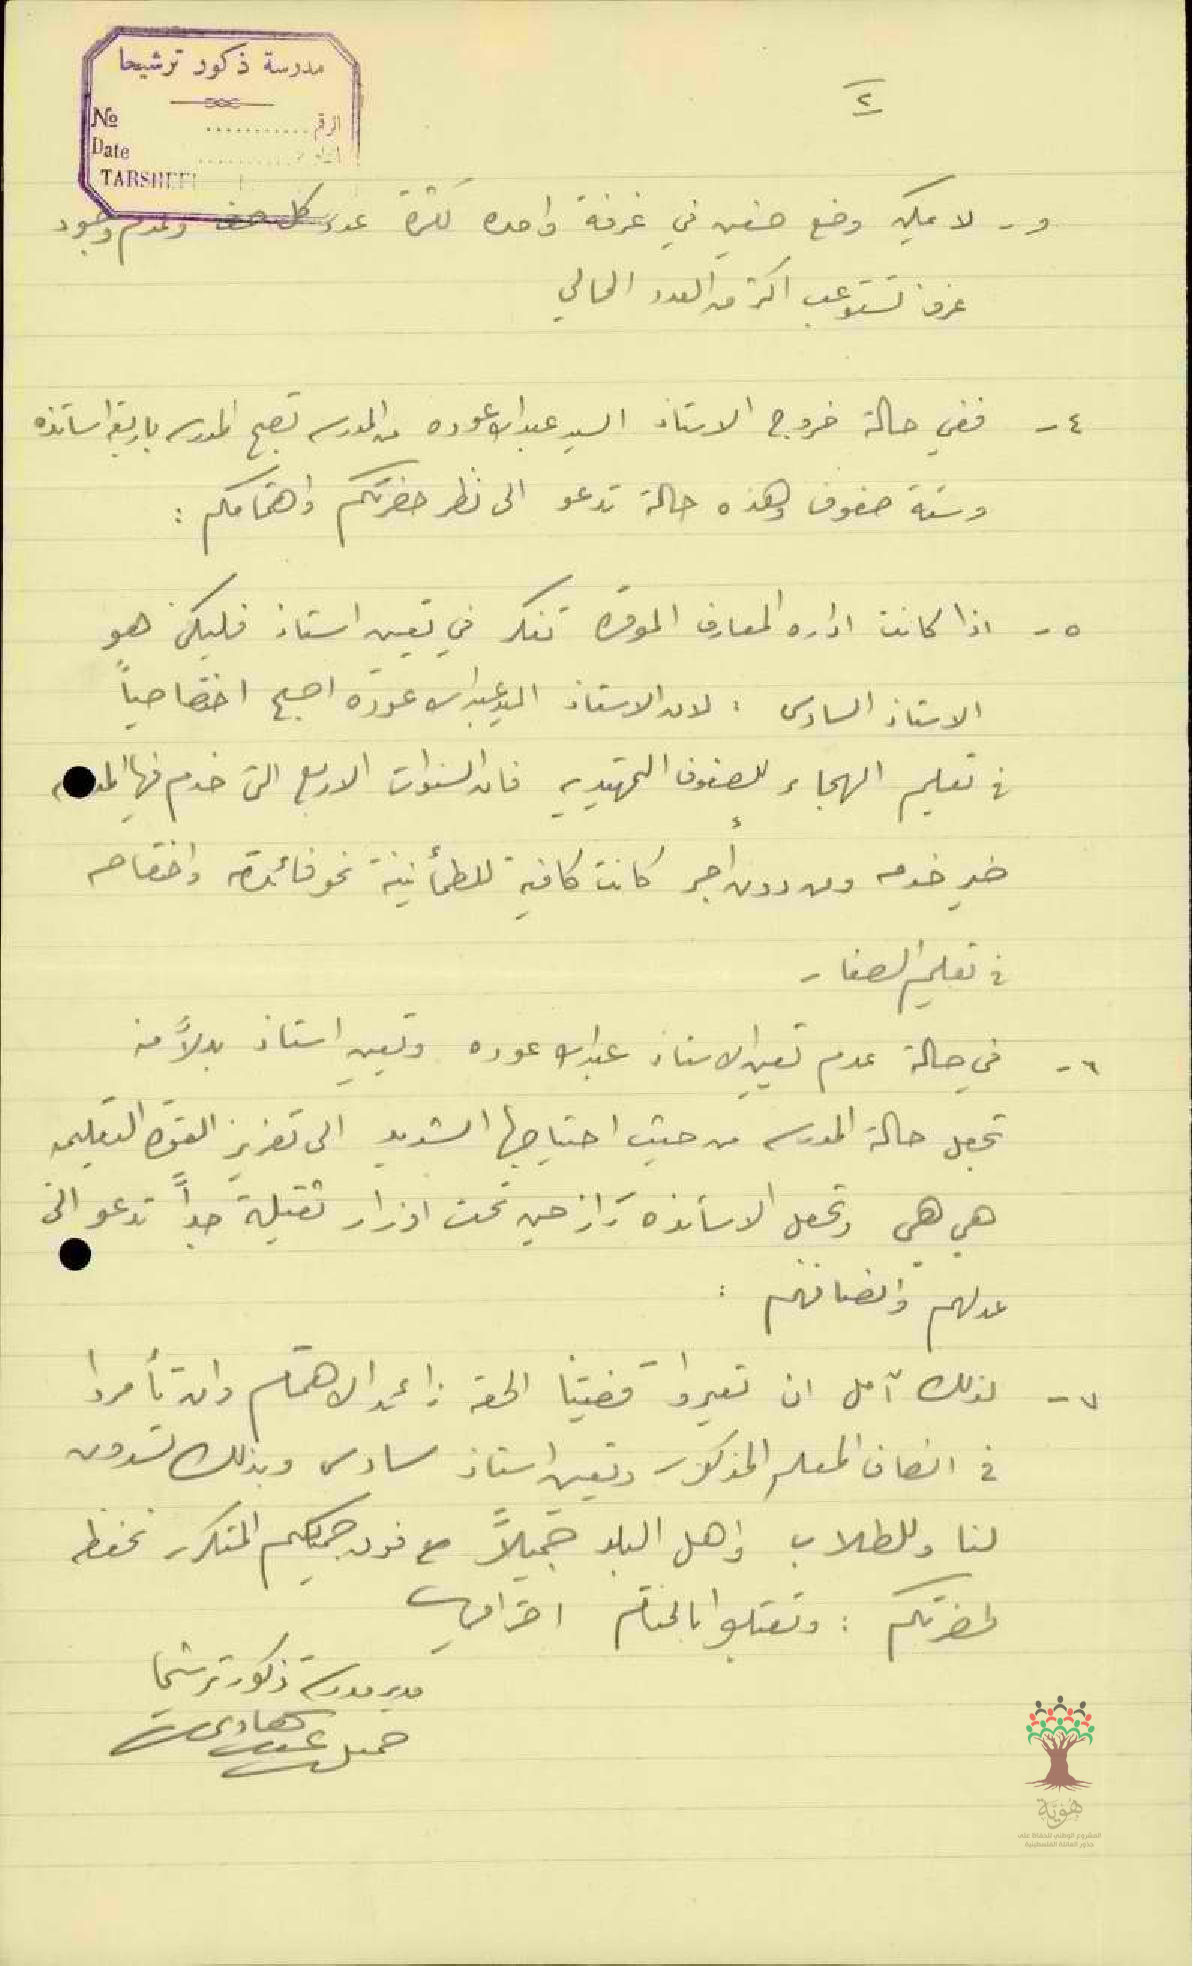 مدرسة ذكور ترشيحا
№ الرقم
Date
TARSHEE
٢
و- لا يمكن وضع صفين في غرفة واحده لكثرة عدد كل صف ولعدم وجود
غرف تستوعب اكثر من العدد الحالي
٤- ففي حالة خروج الاستاذ السيد عبدالله عوده من المدرسه تصبح المدرسه باربعة اساتذه
وستة صفوف وهذه حالة تدعو الى نظر حضرتكم واهتمامكم :
٥- اذا كانت اداره المعارف الموقرة تفكر في تعيين استاذ فليكن هو
الاستاذ السادس : لان الاستاذ السيد عبدالله عودة اصبح اختصاصياً
في تعليم الهجاء للصفوف التمهيديه فان السنوات الاربع التي خدم فيها
خير خدمه ومن دون أجر كانت كافية للطمأنينة نحو فائدته واختصاصه
في تعليم الصغار
٦- في حالة عدم تعيين الاستاذ عبدالله عوده وتعيين استاذ بدلاً منه
تجعل حالة المدرسه من حيث احتياجها الشديد الى تعزيز القوة التعليميه
هي هي وتجعل الاساتذه رازحين تحت اوزار ثقيلة جداً تدعو الى
عدلهم وانصافهم :
٧- لذلك آمل ان تعيروا قضيتنا الحقه زائد الاهتمام وان تأمروا
في انصاف المعلم المذكور وتعيين استاذ سادس وبذلك تسدون
لنا وللطلاب واهل البلد جميلاً فوق جميلكم المتكرر نحفظه
لحضرتكم : وتقبلوا بالختام احترامي
مدير مدرسة ذكور ترشيحا
جميل
هوية
المشروع الوطني للحفاظ على
جذور العائلة الفلسطينية